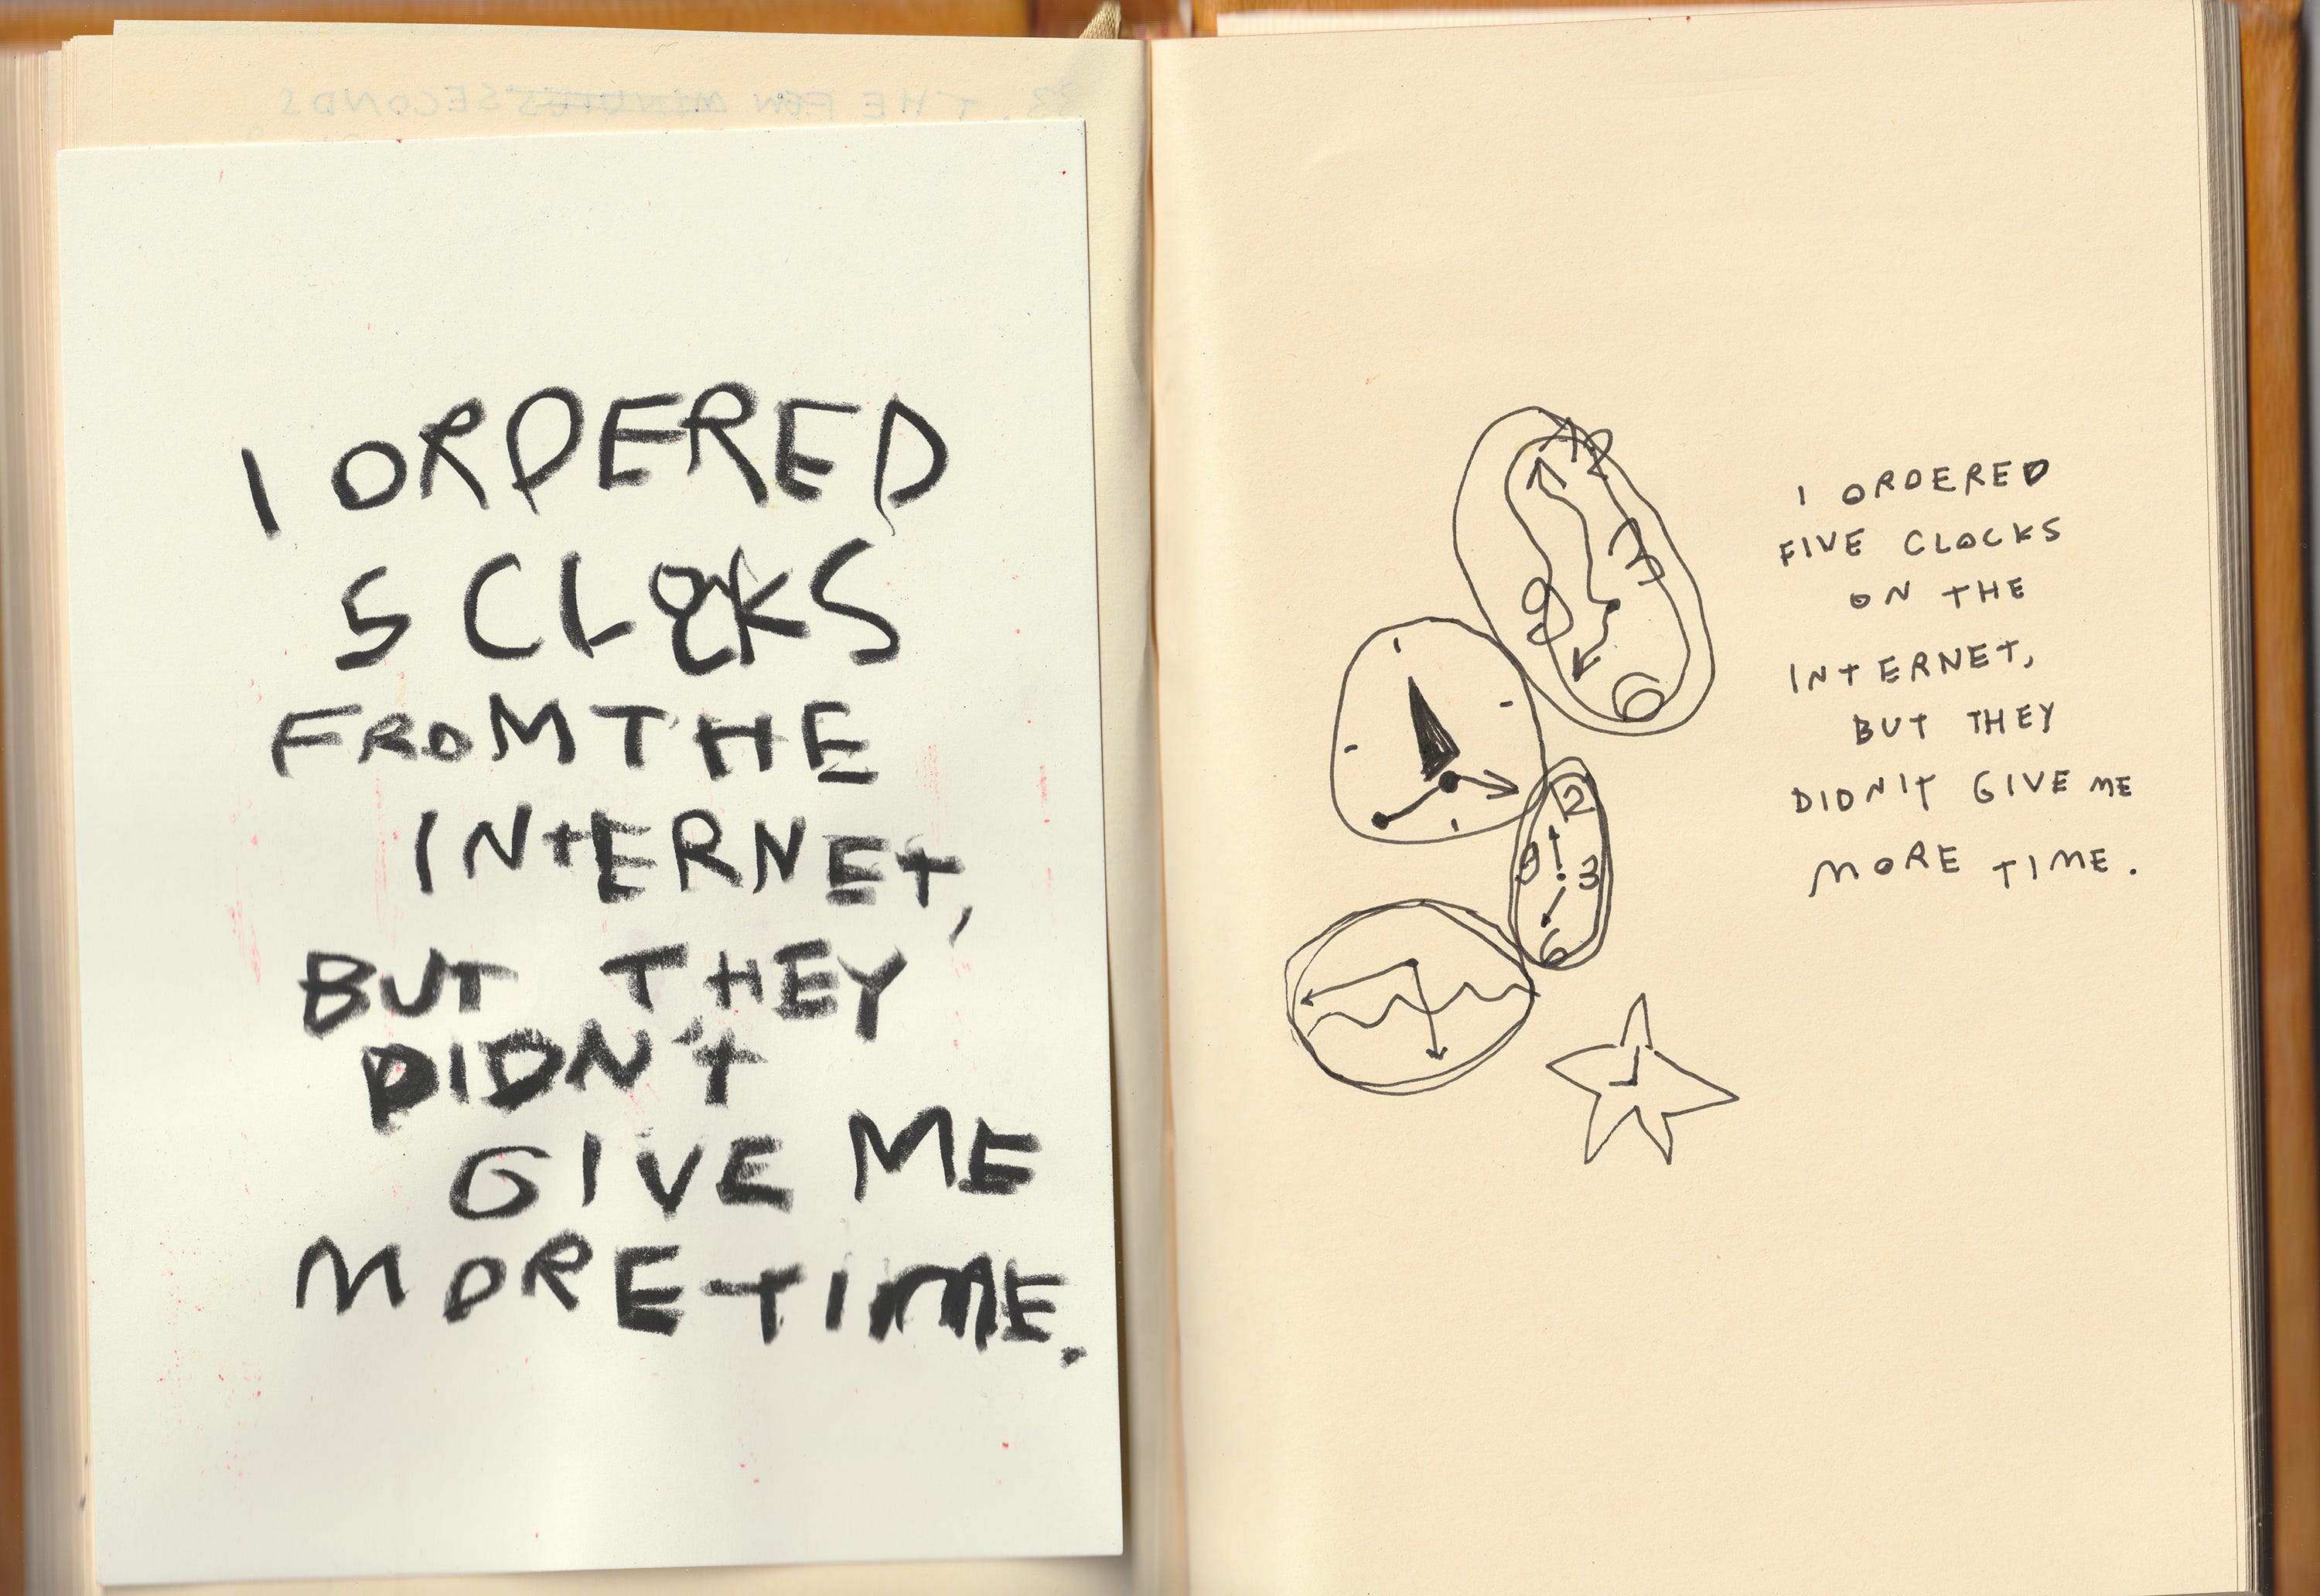 33. THE FEW MINUTES SECONDS
I ORDERED
5 CLOCKS
FROM THE
INTERNET,
BUT THEY
DIDN'T
GIVE ME
MORE TIME.
12
3
9
6
12
9 3
6
I ORDERED
FIVE CLOCKS
ON THE
INTERNET,
BUT THEY
DIDN'T GIVE ME
MORE TIME.